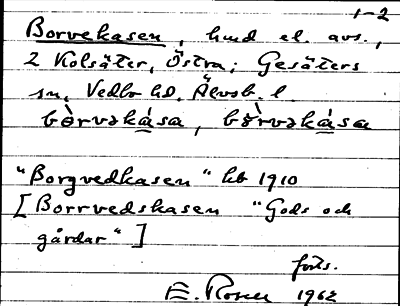 1-2
Borvekasen, hmd el. avs.,
2 Kolsäter, Östra; Gesäters
sn, Vedbo hd, Älvsb. l.
bòrvəkása, bòrvəkása
"Borgvedkasen" hb 1910
[Borrvedskasen "Gods och
gårdar"]
forts.
E. Rosell 1962